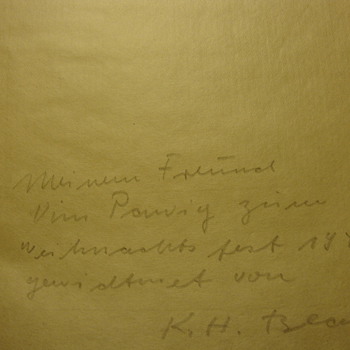 Meinem Freund
Wim
zum
Weihnachts fest 19
gewidmet von
K. H.